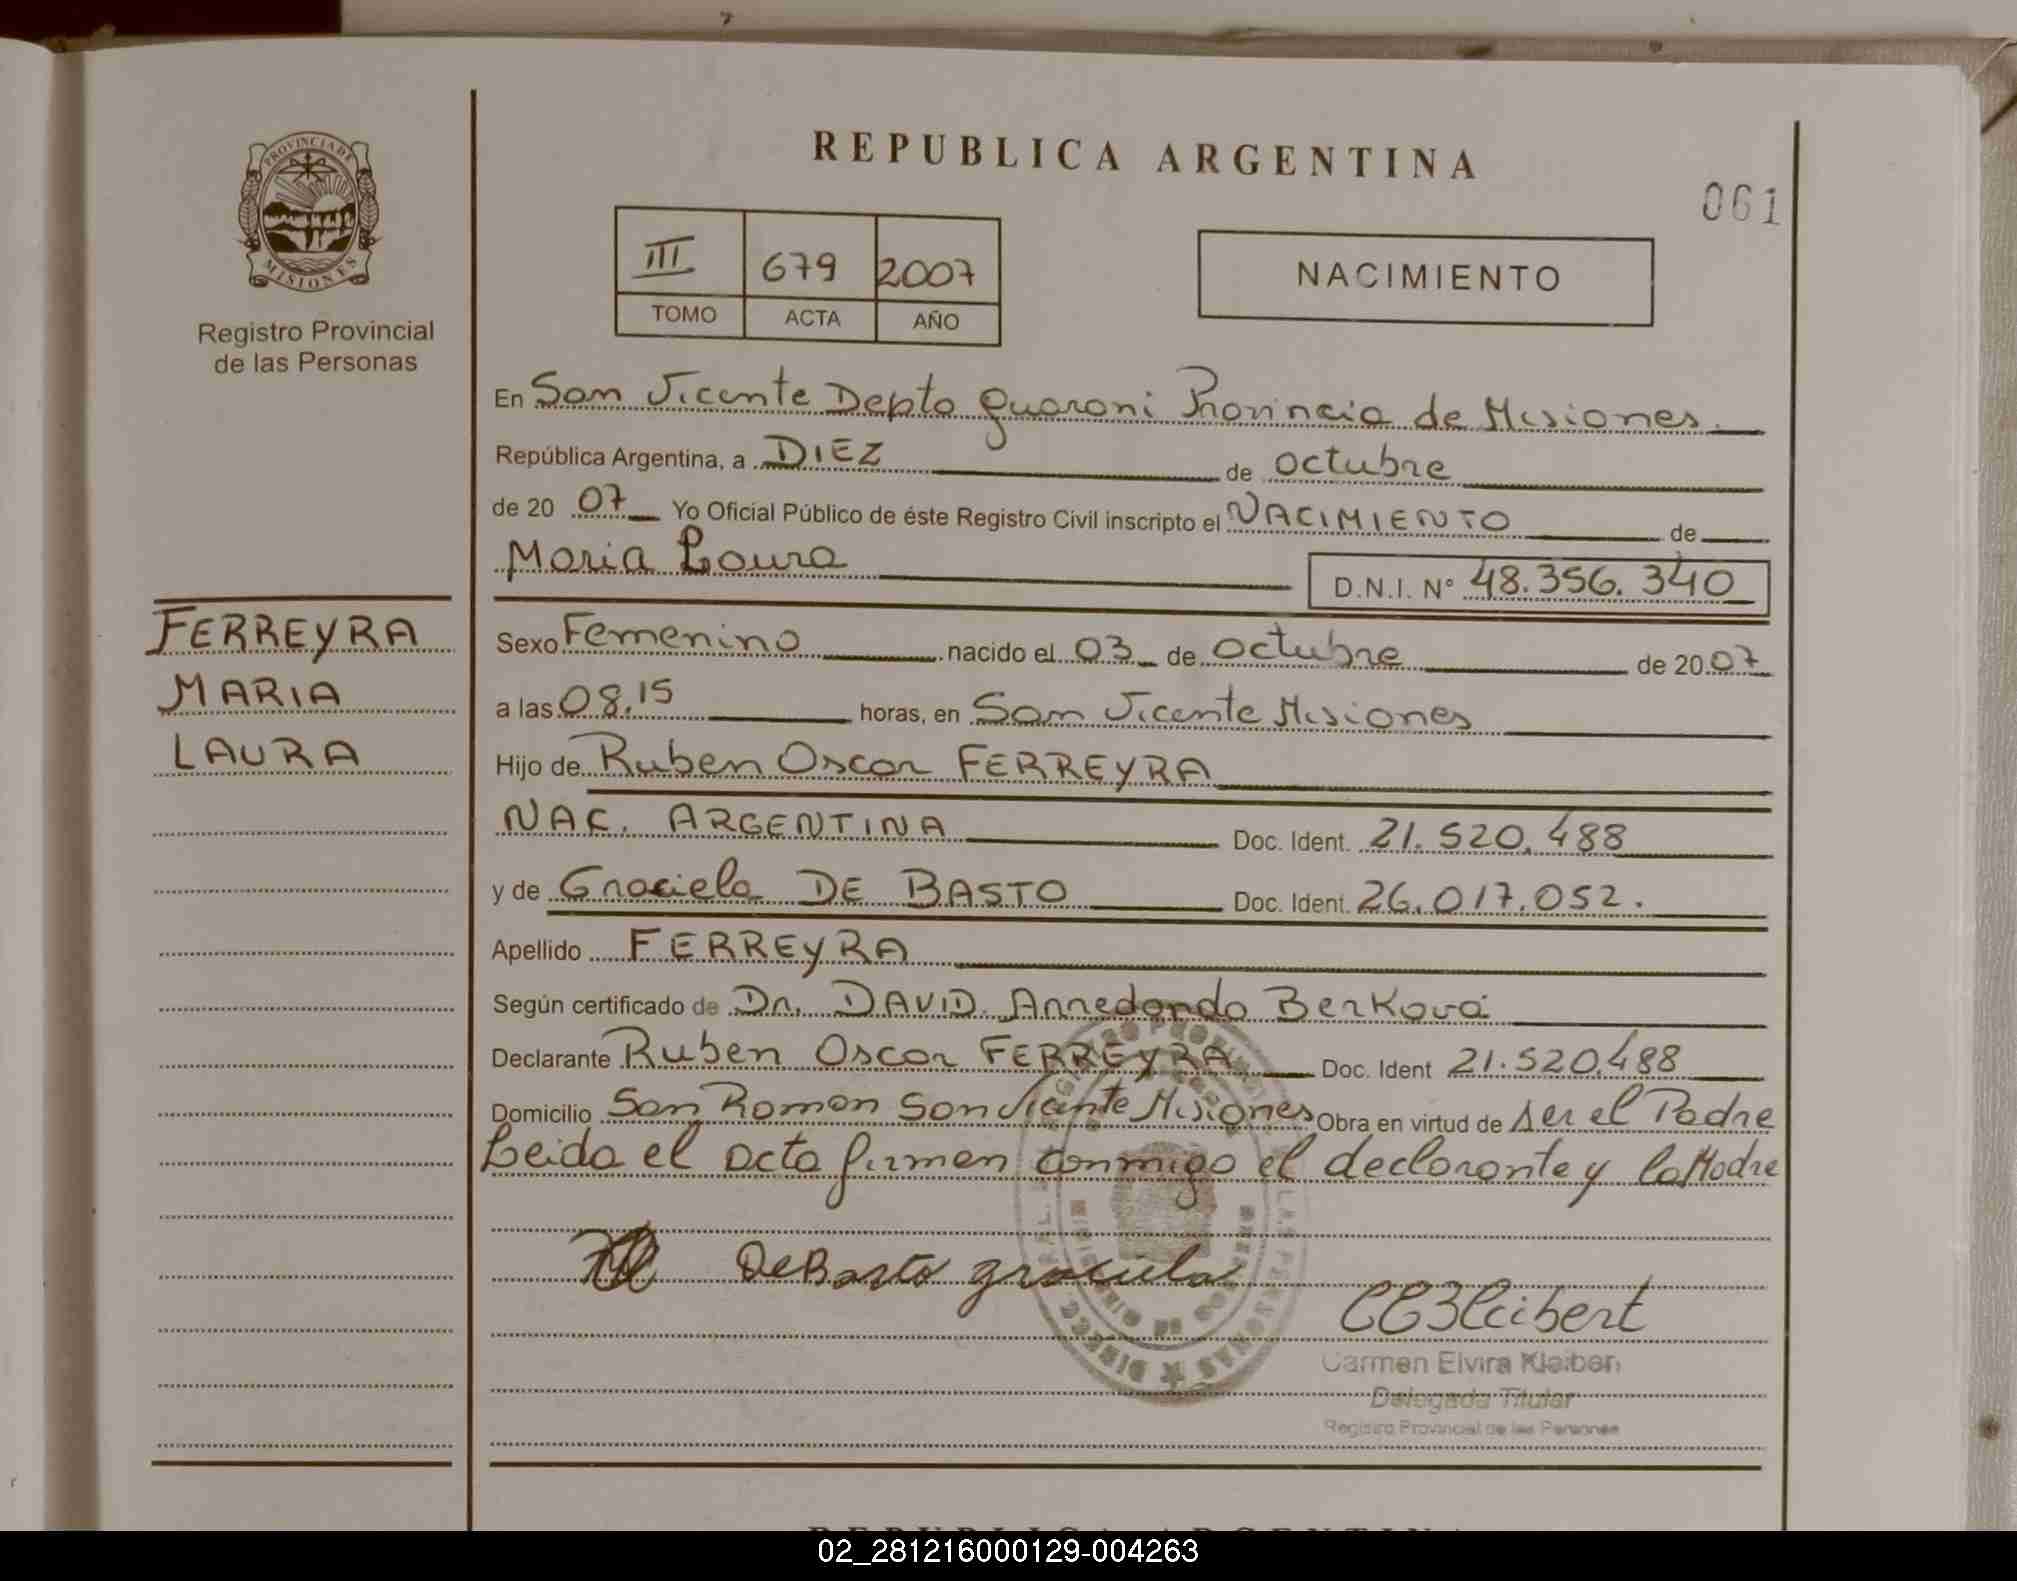 REPUBLICA ARGENTINA
061
PROVINCIA DE
MISIONES
Registro Provincial
de las Personas
III 679 2007
TOMO ACTA AÑO
NACIMIENTO
En San Vicente Depto guarani Provincia de Misiones.
República Argentina, a DIEZ de octubre
de 20 07 Yo Oficial Público de éste Registro Civil inscripto el NACIMIENTO de
Maria Laura D.N.I. Nº 48.356.340
FERREYRA
MARIA
LAURA
Sexo Femenino nacido el 03 de octubre de 20 07
a las 08.15 horas, en San Vicente Misiones
Hijo de Ruben Oscar FERREYRA
NAC. ARGENTINA Doc. Ident. 21.520.488
y de Graciela DE BASTO Doc. Ident. 26.017.052.
Apellido FERREYRA
Según certificado de Dr. DAVID Arredondo Berkova
Declarante Ruben Oscar FERREYRA Doc. Ident 21.520.488
Domicilio San Roman San Vicente Misiones Obra en virtud de ser el Padre
Leida el acta firman conmigo el declarante y la Madre
DeBasto graciela
Carmen Elvira Kleibert
Delegada Titular
Registro Provincial de las Personas
REPUBLICA ARGENTINA
02_281216000129-004263